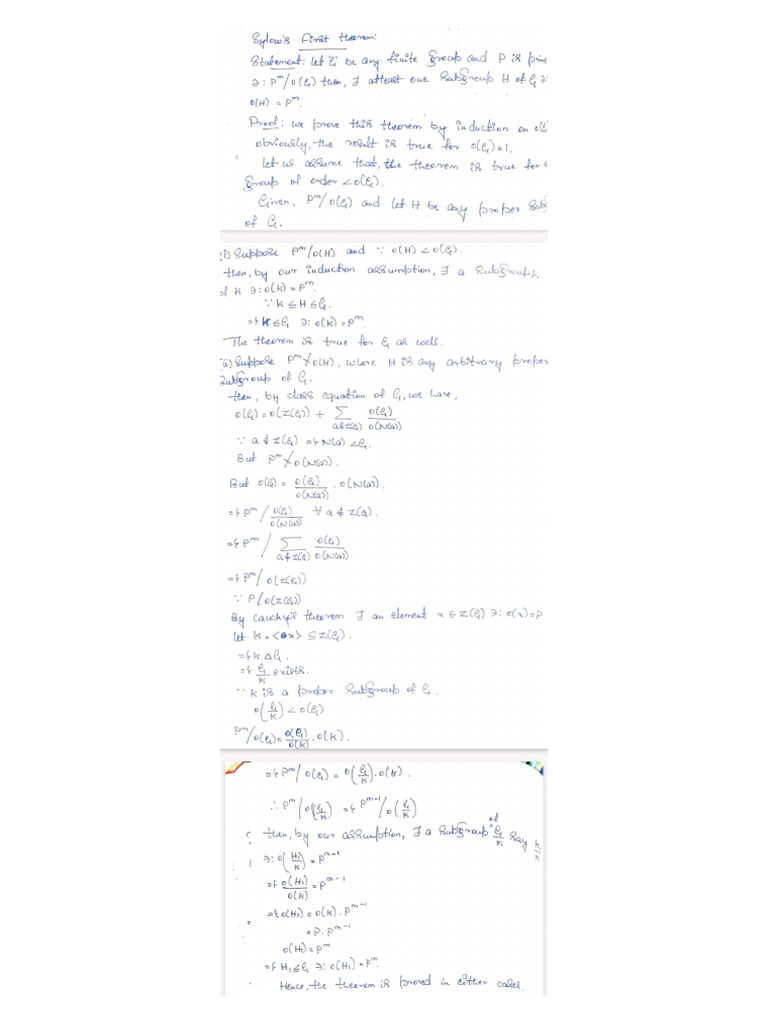 Sylow's First theorem:
Statement: let G be any finite group and P is prime
∋: P^m/o(G) then, ∃ atleast one subgroup H of G ∋:
o(H) = P^m.
Proof: we prove this theorem by induction on o(G)
obviously, the result is true for o(G)=1.
let us assume that, the theorem is true for
group of order <o(G).
Given, P^m/o(G) and let H be any proper sub
of G.
(i) Suppose P^m/o(H) and ∵ o(H) < o(G).
then, by our induction assumption, ∃ a subgroup K
of H ∋: o(K) = P^m.
∵ K ≤ H ≤ G.
⇒ K ≤ G ∋: o(K) = P^m.
The theorem is true for G as well.
(ii) Suppose P^m ∤ o(H), where H is any arbitrary proper
subgroup of G.
then, by class equation of G, we have,
o(G) = o(Z(G)) + Σ_{a∉Z(G)} o(G)/o(N(a))
∵ a ∉ Z(G) ⇒ N(a) < G.
But P^m ∤ o(N(a)).
But o(G) = o(G)/o(N(a)) . o(N(a)).
⇒ P^m / o(G)/o(N(a)) ∀ a ∉ Z(G).
⇒ P^m / Σ_{a∉Z(G)} o(G)/o(N(a))
⇒ P^m / o(Z(G))
∵ P/o(Z(G))
By cauchy's theorem ∃ an element x ∈ Z(G) ∋: o(x) = p
let K = <x> ⊆ Z(G).
⇒ K Δ G.
⇒ G/K exists.
∵ K is a proper subgroup of G.
o(G/K) < o(G)
P^m/o(G) = o(G)/o(K) . o(K).
⇒ P^m/o(G) = o(G/K) . o(K).
∴ P^m/o(G/K) ⇒ P^{m-1}/o(G/K)
then, by our assumption, ∃ a subgroup of G/K say
∋: o(H₁/K) = P^{m-1}
⇒ o(H₁)/o(K) = P^{m-1}
⇒ o(H₁) = o(K) . P^{m-1}
= P . P^{m-1}
o(H₁) = P^m
⇒ H₁ ≤ G ∋: o(H₁) = P^m.
Hence, the theorem is proved in either cases.